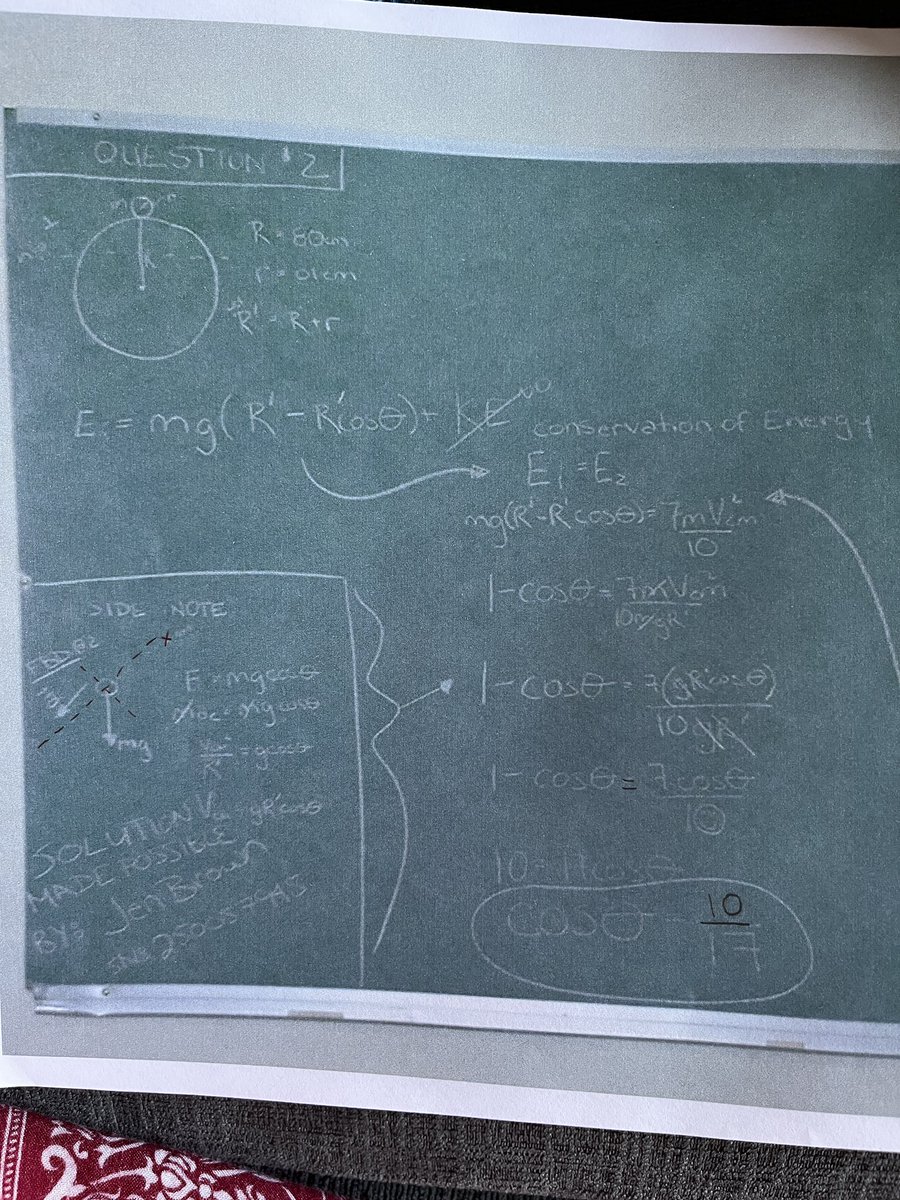 QUESTION #2
R = 80cm
r = 01cm
R' = R+r
E₁ = mg(R' - R'cosθ) + KE
conservation of Energy
E₁ = E₂
mg(R'-R'cosθ) = 7mVcm²/10
1-cosθ = 7mVcm²/10mgR'
1-cosθ = 7(gR'cosθ)/10gR'
1-cosθ = 7cosθ/10
10=17cosθ
cosθ = 10/17
SIDE NOTE
FBD@2
mg
F = mgcosθ
= gcosθ
gR'cosθ
SOLUTION
MADE POSSIBLE
BY: Jen Brown